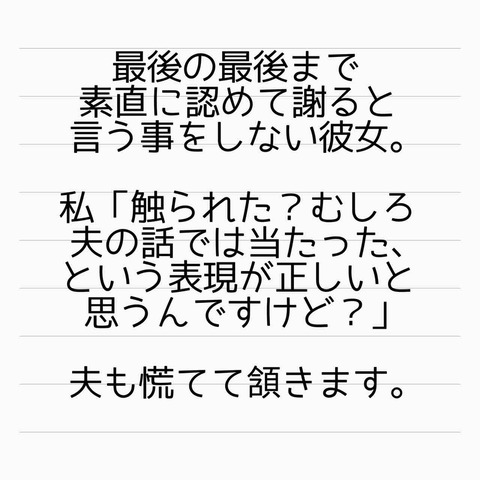 最後の最後まで
素直に認めて謝ると
言う事をしない彼女。
私「触られた？むしろ
夫の話では当たった、
という表現が正しいと
思うんですけど？」
夫も慌てて頷きます。